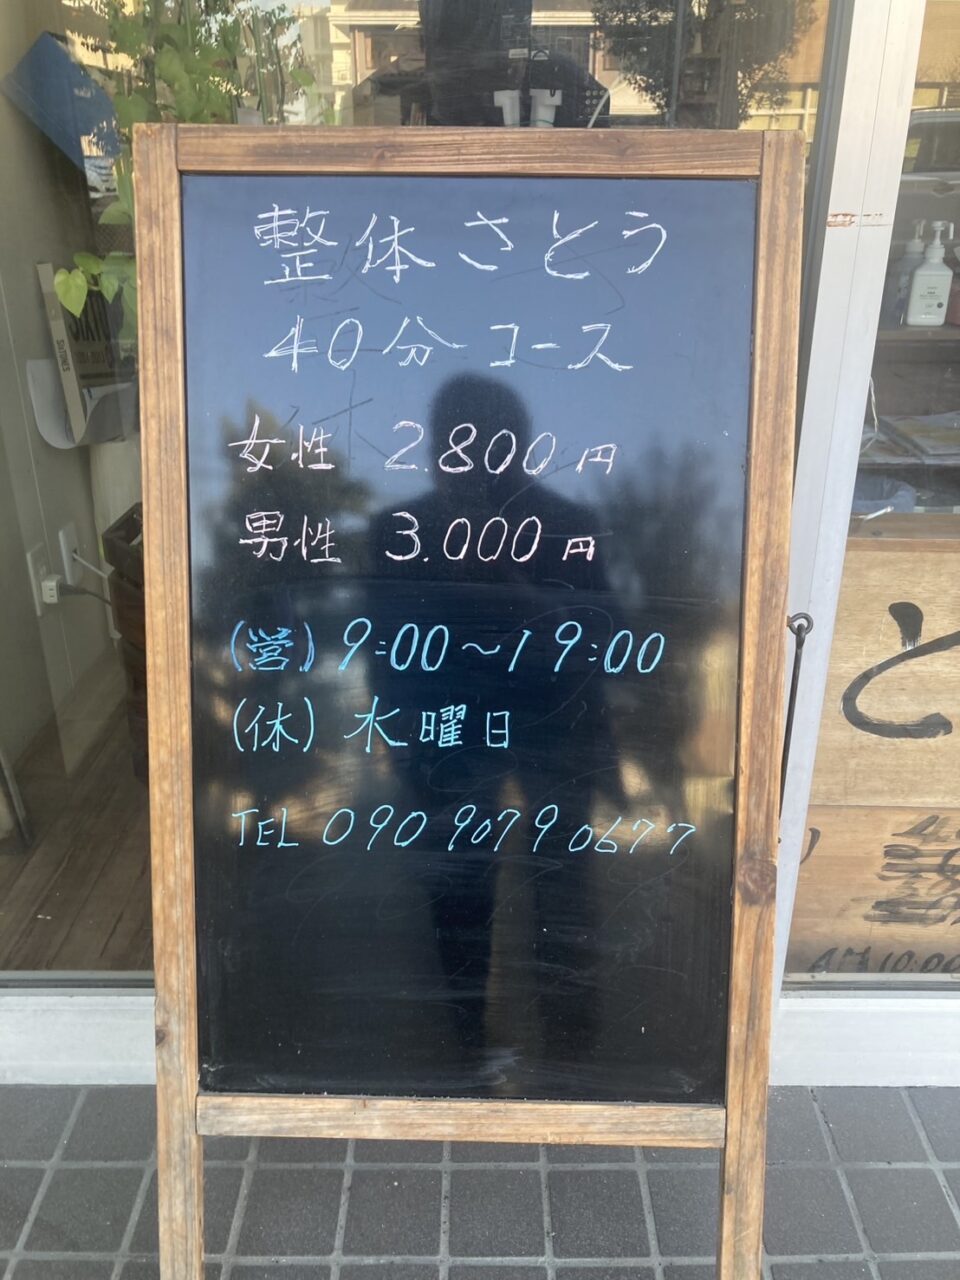 整体さとう
40分コース
女性 2.800円
男性 3.000円
(営) 9:00〜19:00
(休) 水曜日
TEL 090 9079 0677
と